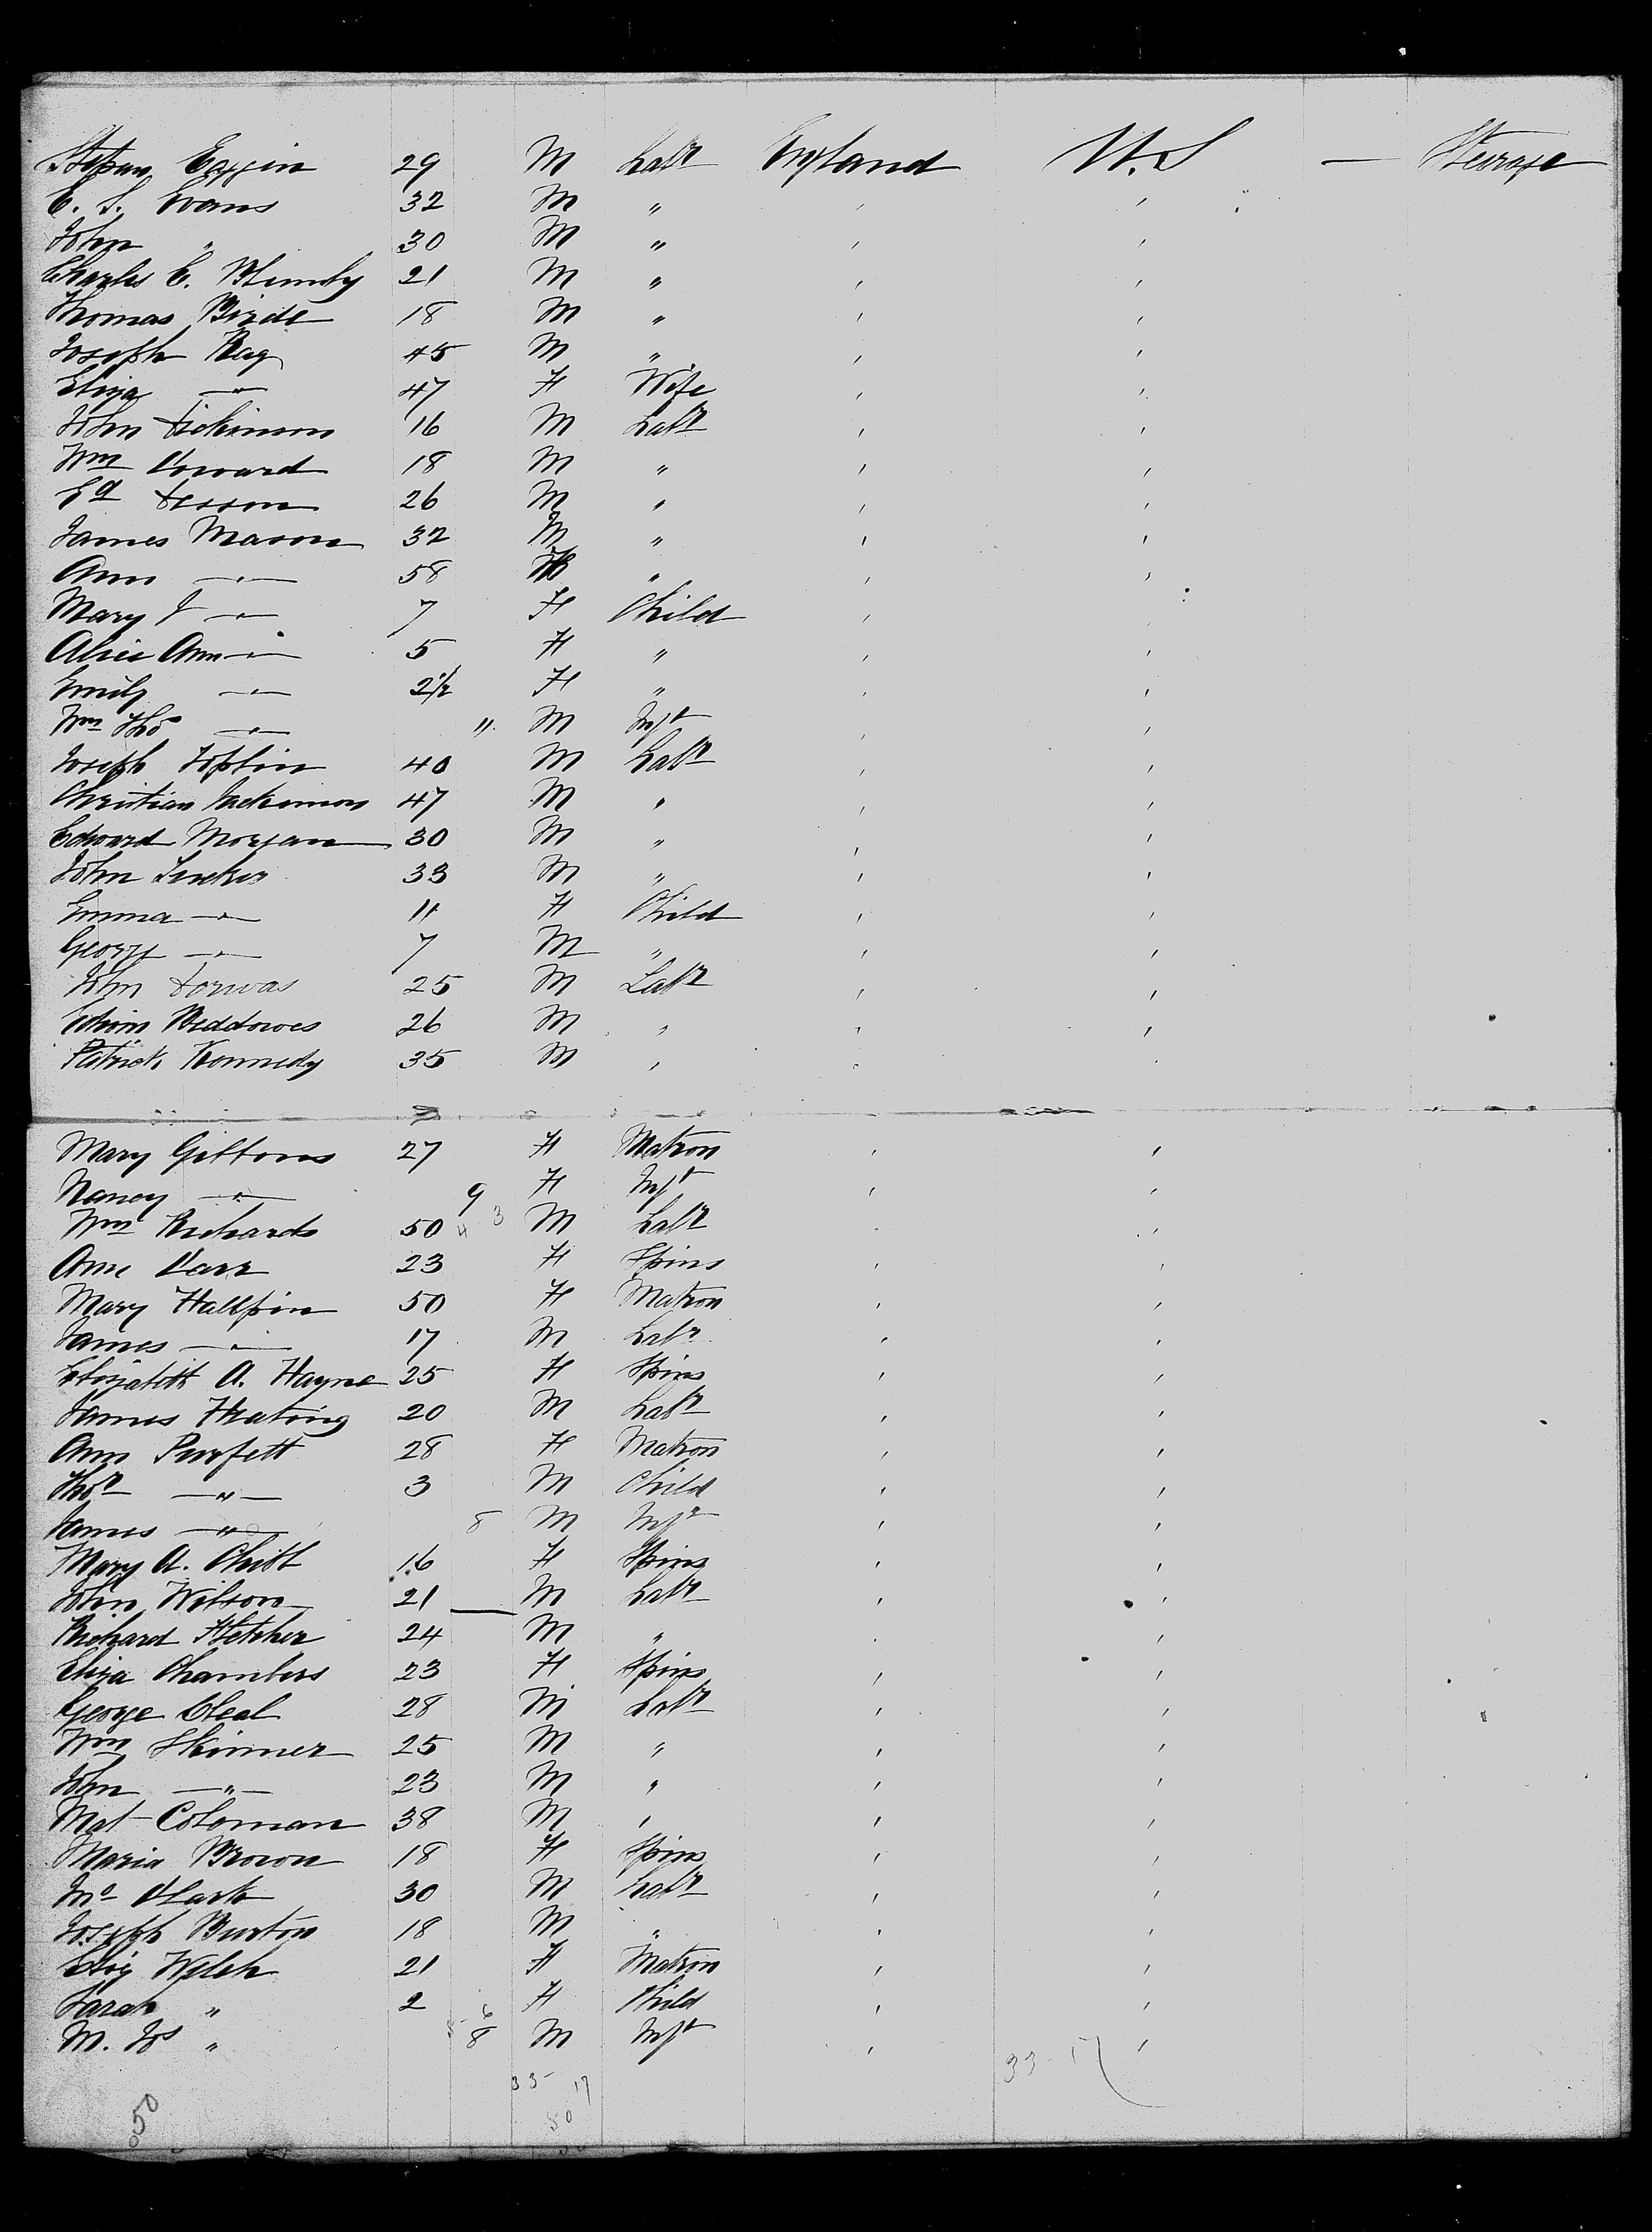 Stephen Eggin 29 M Labr England U.S — Steerage
E. S. Evans 32 M " ' '
John " 30 M " ' '
Charles E. 21 M " ' '
Thomas Birde 18 M " ' '
Joseph Ray 45 M " ' '
Eliza —"— 47 F Wife ' '
John Dickinson 16 M Labr ' '
Wm Howard 18 M " ' '
Ed 26 M " ' '
James Mason 32 M " ' '
Ann —"— 58 " ' '
Mary J —"— 7 F Child ' '
Alice Ann —"— 5 F " ' '
Emily —"— 2 1/2 F " ' '
Wm Thos —"— 11 M Inft ' '
Joseph Joplin 40 M Labr ' '
Christian 47 M " ' '
Edward Morgan 30 M " ' '
John 33 M " ' '
Emma —"— 11 F Child ' '
George —"— 7 M " ' '
John 25 M Labr ' '
Edwin Beddowes 26 M " ' '
Patrick Kennedy 35 M " ' '
Mary Gibbons 27 F Matron ' '
Nancy —"— 9 F Inft ' '
Wm Richards 50 4 3 M Labr ' '
Ann 23 F Spins ' '
Mary Hallpin 50 F Matron ' '
James —"— 17 M Labr ' '
Elizabeth A. Hayne 25 F Spins ' '
James Keating 20 M Labr ' '
Ann Purfett 28 F Matron ' '
Thos —"— 3 M Child ' '
James —"— 8 M Inft ' '
Mary A. Chitt 16 F Spins ' '
John Wilson 21 — M Labr ' '
Richard Fletcher 24 M " ' '
Eliza Chambers 23 F Spins ' '
George Cleal 28 M Labr ' '
Wm Skinner 25 M " ' '
John —"— 23 M " ' '
Mat Coleman 38 M " ' '
Maria Brown 18 F Spins ' '
Clark 30 M Labr ' '
Joseph Burton 18 M " ' '
Eliz Welch 21 F Matron ' '
Sarah " 2 F Child ' '
M. Js " 8 M Inft ' '
33 17 33-17
50 50